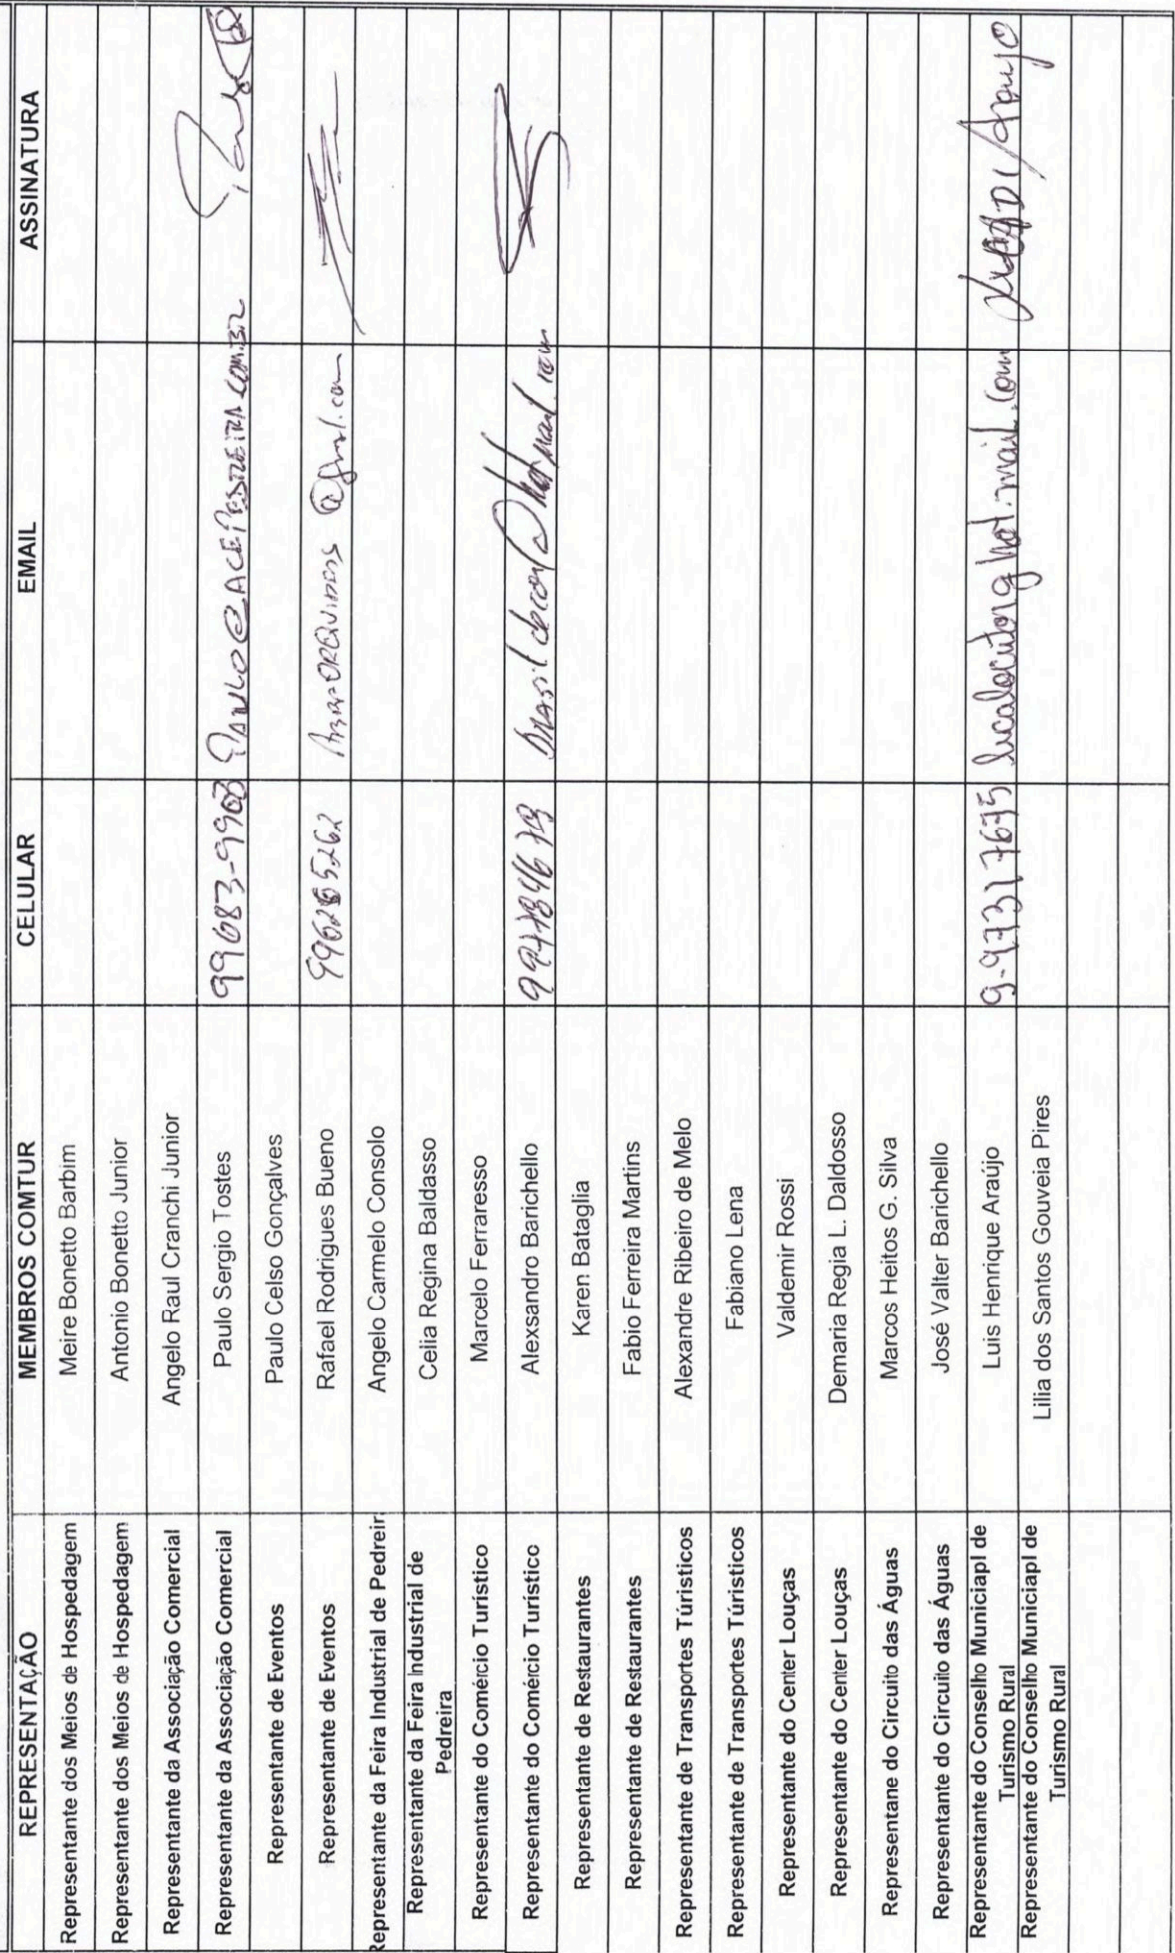 REPRESENTAÇÃO MEMBROS COMTUR CELULAR EMAIL ASSINATURA
Representante dos Meios de Hospedagem Meire Bonetto Barbim
Representante dos Meios de Hospedagem Antonio Bonetto Junior
Representante da Associação Comercial Angelo Raul Cranchi Junior
Representante da Associação Comercial Paulo Sergio Tostes 99683-9908
Representante de Eventos Paulo Celso Gonçalves
Representante de Eventos Rafael Rodrigues Bueno
Representante da Feira Industrial de Pedreir Angelo Carmelo Consolo
Representante da Feira Industrial de
Pedreira Celia Regina Baldasso
Representante do Comércio Turístico Marcelo Ferraresso
Representante do Comércio Turístico Alexsandro Barichello
Representante de Restaurantes Karen Bataglia
Representante de Restaurantes Fabio Ferreira Martins
Representante de Transportes Túristicos Alexandre Ribeiro de Melo
Representante de Transportes Túristicos Fabiano Lena
Representante do Center Louças Valdemir Rossi
Representante do Center Louças Demaria Regia L. Daldosso
Representane do Circuito das Águas Marcos Heitos G. Silva
Representante do Circuito das Águas José Valter Barichello
Representante do Conselho Municiapl de
Turismo Rural Luis Henrique Araújo 9-97317635
Representante do Conselho Municiapl de
Turismo Rural Lilia dos Santos Gouveia Pires